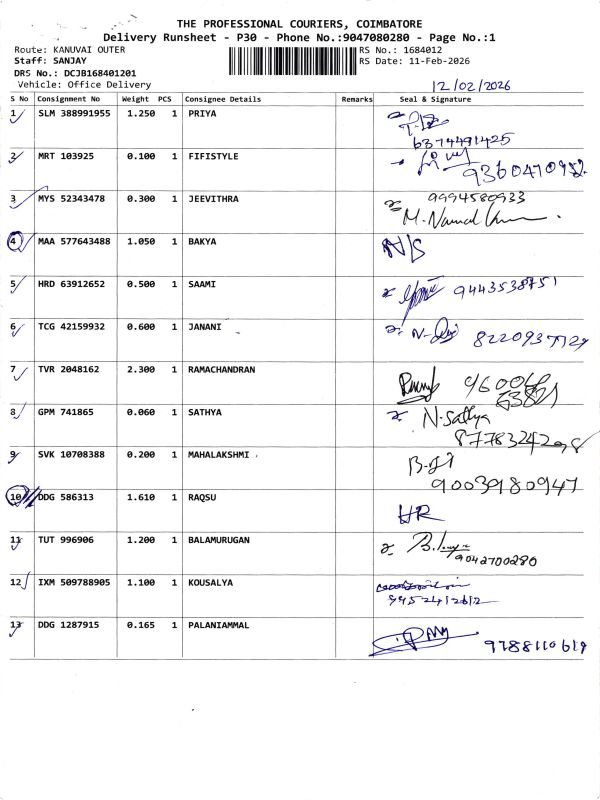 THE PROFESSIONAL COURIERS, COIMBATORE
Delivery Runsheet - P30 - Phone No.:9047080280 - Page No.:1
Route: KANUVAI OUTER
RS No.: 1684012
Staff: SANJAY
RS Date: 11-Feb-2026
DRS No.: DCJB168401201
Vehicle: Office Delivery
12/02/2026
S No Consignment No Weight PCS Consignee Details Remarks Seal & Signature
1 SLM 388991955 1.250 1 PRIYA
6374491425
2 MRT 103925 0.100 1 FIFISTYLE
3 MYS 52343478 0.300 1 JEEVITHRA 9994580933
4 MAA 577643488 1.050 1 BAKYA N/S
5 HRD 63912652 0.500 1 SAAMI 9443538751
6 TCG 42159932 0.600 1 JANANI
7 TVR 2048162 2.300 1 RAMACHANDRAN
8 GPM 741865 0.060 1 SATHYA N.Sathya
9 SVK 10708388 0.200 1 MAHALAKSHMI
9003980947
10 DDG 586313 1.610 1 RAQSU
11 TUT 996906 1.200 1 BALAMURUGAN
9042700280
12 IXM 509788905 1.100 1 KOUSALYA
9952412612
13 DDG 1287915 0.165 1 PALANIAMMAL
9788110619